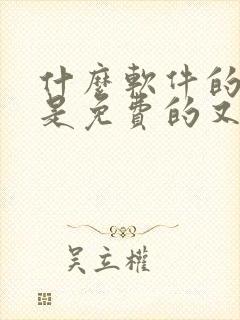 什麼軟件的
是免費的又
吴立權